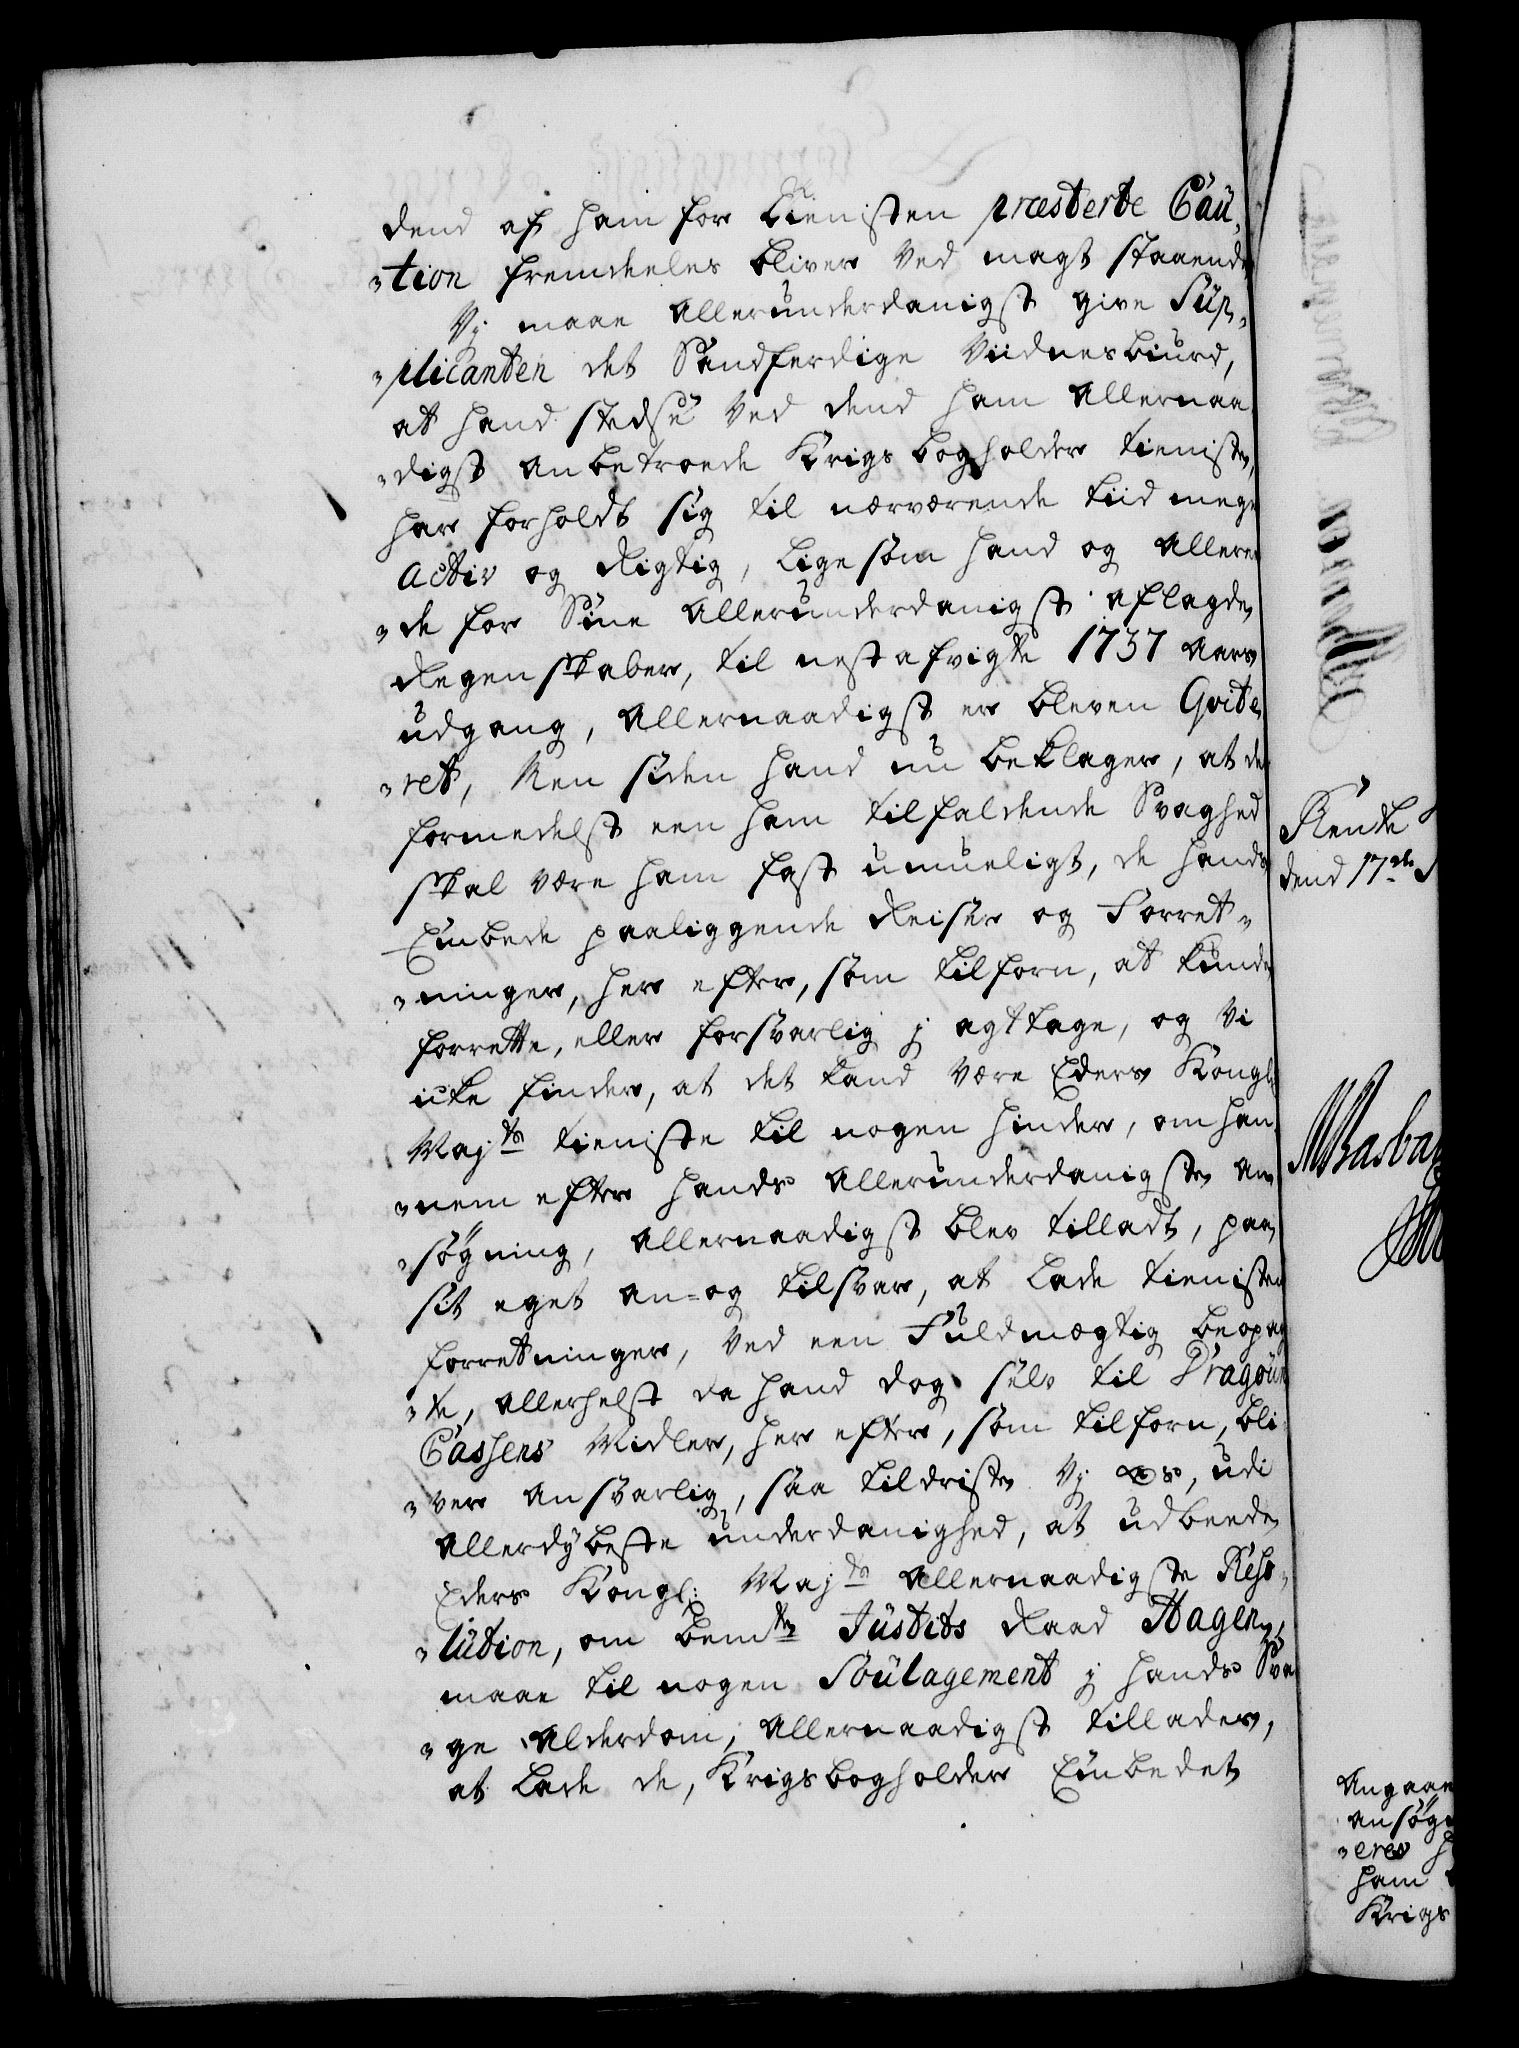 dend af ham for tienisten præsterte Cau-
-tion fremdeeles bliver ved magt staaende
Vj maae allerunderdanigst give Sup-
-plicanten det Sandferdige Vidnesbiurd,
at hand stedse ved dend ham allernaa-
-digst anbetroede Krigsbogholder tieniste,
har forholdt sig til nærværende tiid meget
activ og rigtig, ligesom hand og allere-
-de for Sine allerunderdanigst aflagde
Regenskaber, til nestafvigte 1737 Aars
udgang, allernaadigst er bleven Qvite-
-ret, Men siden hand nu beklager, at det
formedelst een ham tilfaldende Svaghed
skal være ham fast umueligt, de hands
Embede paaliggende Reiser og Forret-
-ninger, her efter, som tilforn, at kunde
forrette, eller forsvarlig j agttage, og Vi
icke finder, at det kand være Eders Kongl:
Maj:ts tieniste til nogen hinder, om han-
-nem efter hands allerunderdanigste an-
-søgning, allernaadigst blev tilladt, paa
sit eget an- og tilsvar, at lade tienisten
forretninger, ved een Fuldmægtig beopag-
-te, allerhelst da hand dog selv til Dragoun
Cassens Midler, her efter, som tilforn, bli-
-ver ansvarlig, saa tildriste Vj os, udi
allerdybeste underdanighed, at udbeede
Eders Kongl: Maj:ts allernaadigste Reso-
-lution, om bem:te Justits Raad Hagen,
maae til nogen Soulagement j hands Sva-
-ge Alderdom, allernaadigst tillades,
at lade de, Krigsbogholder Embedet
Rente
dend 17de
Angaae
ansøg
-eres
ham
Krigs